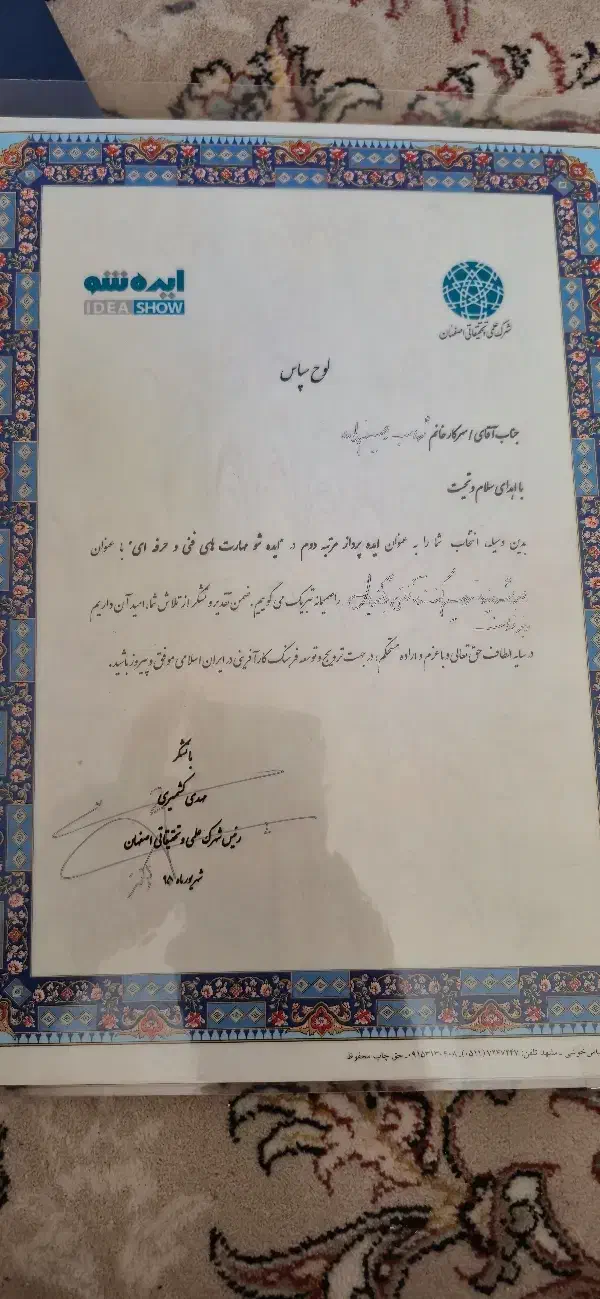 ایده شو
IDEA SHOW
شهرک علمی تحقیقاتی اصفهان
لوح سپاس
جناب آقای / سرکار خانم
با اهدای سلام و تحیت
بدین وسیله انتخاب شما را به عنوان ایده پرداز مرتبه دوم در "ایده شو مهارت های فنی و حرفه ای" با عنوان
را صمیمانه تبریک می گوییم. ضمن تقدیر و تشکر از تلاش شما، امید آن داریم
در سایه الطاف حق تعالی و با عزم و اراده مستحکم؛ در جهت ترویج و توسعه فرهنگ کارآفرینی در ایران اسلامی موفق و پیروز باشید.
با تشکر
مهدی کشمیری
رئیس شهرک علمی و تحقیقاتی اصفهان
شهریور ماه ۹۵
خوشی - مشهد تلفن: حق چاپ محفوظ